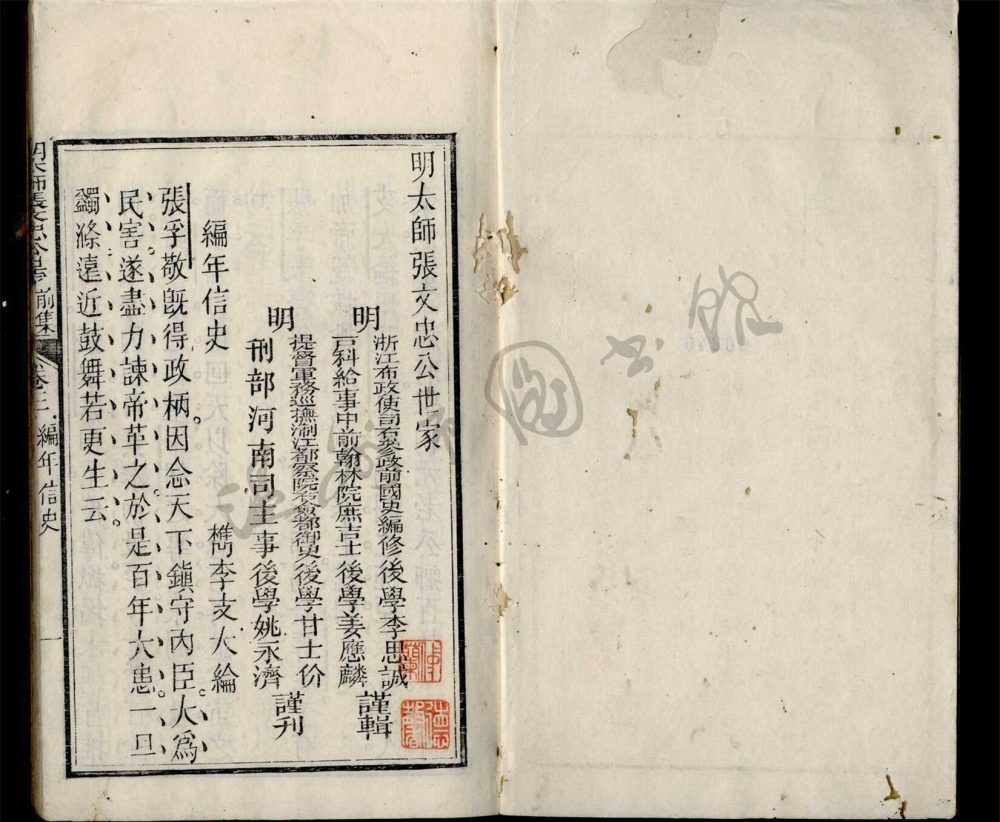 明太師張文忠公世家
明
浙江布政使司右叅政前國史編修後學李思誠
言科給事中前翰林院庶吉士後學姜應麟
謹輯
明
提督軍務巡撫浙江都察院右僉都御史後學甘士价
刑部河南司主事後學姚永濟
謹刋
編年信史
檇李支大綸
張孚敬旣得政柄。因念天下鎮守內臣。大爲
民害。遂盡力諫帝革之。於是百年大患。一旦
蠲滌。遠近鼓舞若更生云。
明太師張文忠公世家前集
卷二
編年信史
一
圖書館